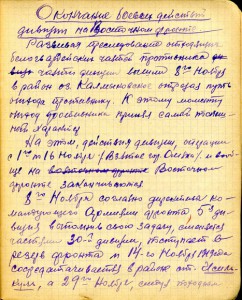 Окончание боевых действий
дивизии на Восточном фронте
Развивая преследование отходящих
белогвардейских частей противника
части дивизии вышли 8го Ноября
в район оз. отрезая путь
отхода противнику. К этому моменту
отход противника принял самый
характер
На этом, действия дивизии, операции
с 1го по 16 Ноября (Взятие гор. Омска), и вооб-
ще на Восточном
фронте заканчиваются
8го Ноября согласно директивы ко-
мандующего Армиями фронта, 5я ди-
визия выполнив свою задачу, сменяется
частями 30й дивизии, поступает в
резерв фронта и 14-го Ноября
сосредотачивается в районе ст.
а 29го Ноября,